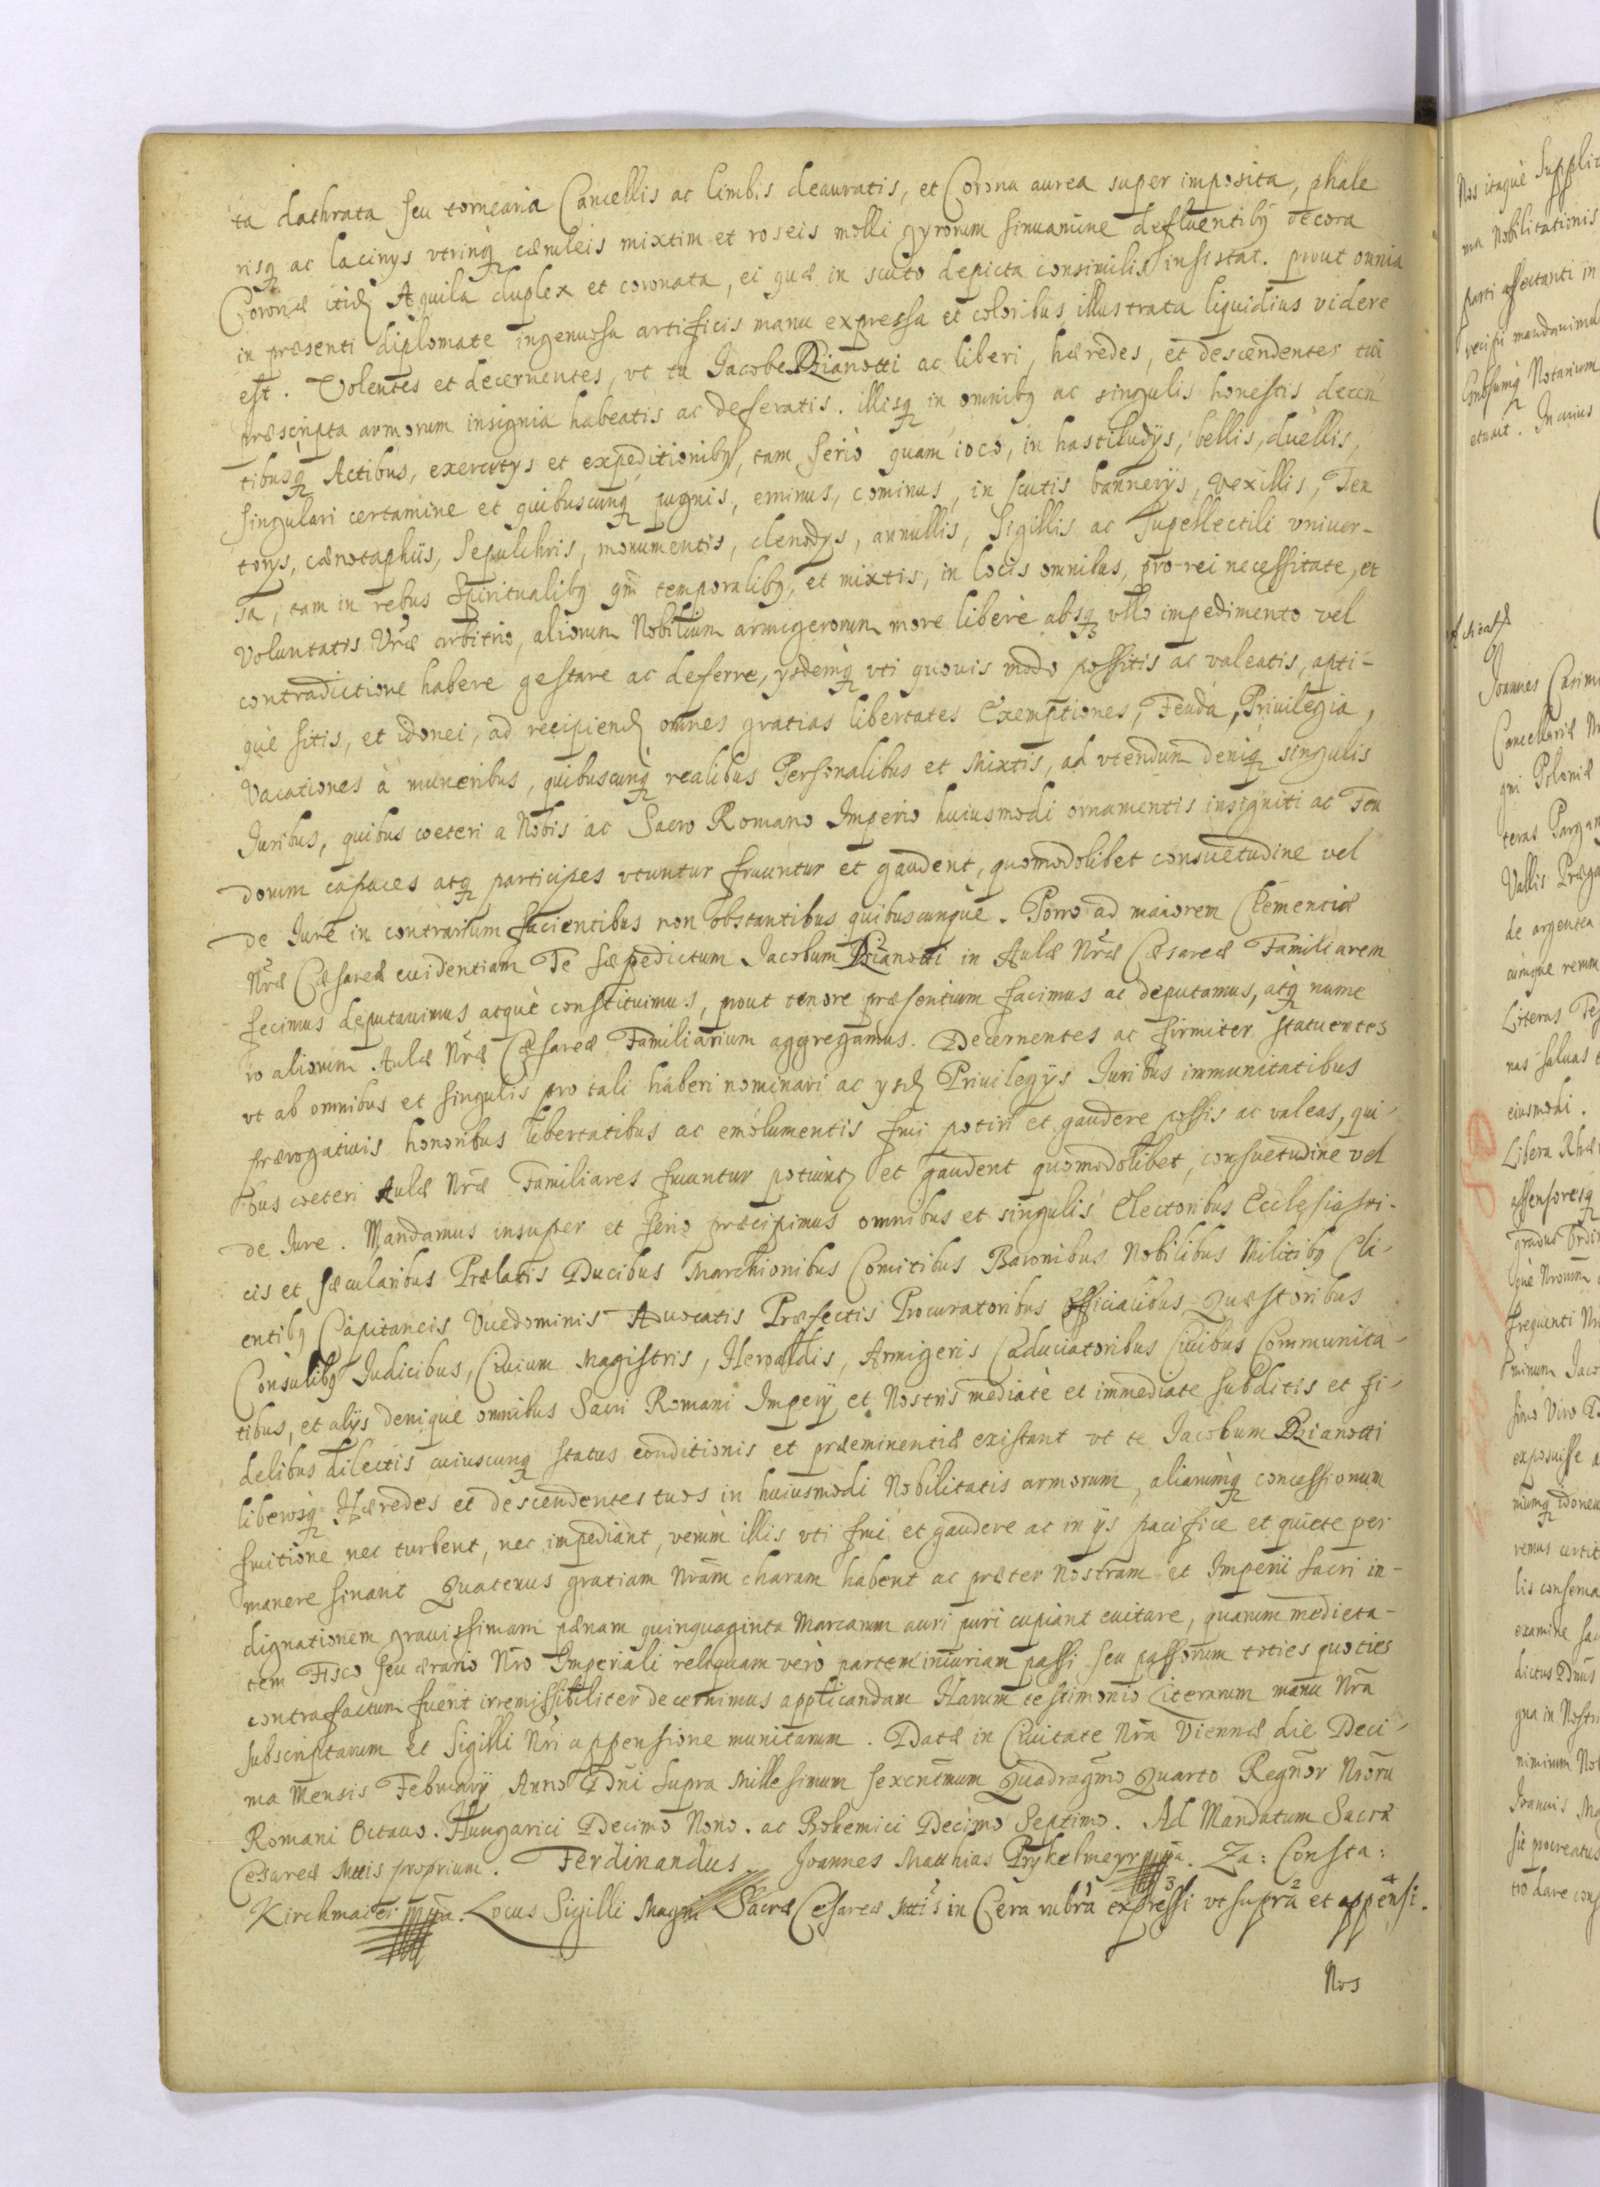 ta clathrata seu tornearia Cancellis ac limbis deauratis, et Corona aurea super imposita, phale
risq ac lacinÿs vtrinq cæruleis mixtim et roseis molli gyrorum sinuamine defluentibꝫ decora
Coronæ itid Aquila duplex et coronata, ei quæ in scuto depicta consimilis insistat. prout omnia
in præsenti diplomate ingenuosa artificis manu expressa et coloribus illustrata liquidius videre
est. Volentes et decernentes, vt tu Jacobe Bianotti ac liberi, hæredes, et descendentes tui
præscripta armorum insignia habeatis ac deferatis. illisq in omnibꝫ ac singulis honestis decen
tibusq Actibus, exercitÿs et expeditionibꝫ, tam serio quam ioco, in hastiludÿs, bellis, duellis,
singulari certamine et quibuscunq pugnis, eminus, cominus, in scutis bannerÿs, vexillis, Ten
torÿs, cænotaphiis, Sepulchris, monumentis, clenodÿs, annullis, Sigillis ac Supellectili vniuer-
sa, tam in rebus spiritualibꝫ qm temporalibꝫ, et mixtis, in locis omnibus, pro rei necessitate, et
voluntatis Vræ arbitrio, aliorum Nobilium armigerorum more liberè absq vllo impedimento vel
contradictione habere gestare ac deferre, ÿsdemq vti quouis modo possitis ac valeatis, apti-
què sitis, et idonei, ad recipiend omnes gratias libertates Exemptiones, Feuda, Priuilegia,
Vacationes à muneribus, quibuscunq realibus Personalibus et Mixtis, ad vtendum deniq singulis
Juribus, quibus cœteri a Nobis ac Sacro Romano Imperio huiusmodi ornamentis insigniti ac Feu
dorum capaces atq participes vtuntur fruuntur et gaudent, quomodolibet consuetudine vel
de Jure in contrarium facientibus non obstantibus quibuscunque. Porro ad maiorem Clementiæ
Nræ Cæsareæ euidentiam Te sæpedictum Jacobum Bianotti in Aulæ Nræ Cæsareæ Familiarem
fecimus deputauimus atquè constituimus, prout tenore præsentium facimus ac deputamus, atq nume
ro aliorum Aulæ Nræ Cæsareæ Familiarium aggregamus. Decernentes ac firmiter statuentes
vt ab omnibus et singulis pro tali haberi nominari ac ÿsd Priuilegÿs Juribus immunitatibus
prærogatiuis honoribus libertatibus ac emolumentis frui potiri et gaudere possis ac valeas, qui-
bus cœteri Aulæ Nræ Familiares fruuntur potiunt et gaudent quomodolibet, consuetudine vel
de Jure. Mandamus insuper et serio præcipimus omnibus et singulis Electoribus Ecclesiasti-
cis et sæcularibus Prælatis Ducibus Marchionibus Comitibus Baronibus Nobilibus Militibꝫ Cli-
entibꝫ Capitaneis Vicedominis Aduocatis Præfectis Procuratoribus Officialibus Quæstoribus
Consulibꝫ Judicibus, Ciuium Magistris, Heroaldis, Armigeris Caduciatoribus Ciuibus Communita-
tibus, et alÿs denique omnibus Sacri Romani Imperÿ et Nostris mediatè et immediate subditis et fi-
delibus dilectis cuiuscunq status conditionis et præeminentiæ existant vt te Jacobum Bianotti
liberosq Hæredes et descendentes tuos in huiusmodi Nobilitatis armorum, aliarumq concessionum
fruitione nec turbent, nec impediant, verum illis vti frui et gaudere ac in ÿs pacifice et quiete per
manere sinant Quatenus gratiam Nram charam habent ac præter Nostram et Imperii sacri in-
dignationem grauissimam pænam quinquaginta Marcarum auri puri cupiant euitare, quarum medieta-
tem Fisco seu ærario Nro Imperiali reliquam verò partem iniuriam passi seu passorum toties quoties
contrafactum fuerit irremissibiliter decernimus applicandam Harum testimonio Literarum manu Nra
subscriptarum et Sigilli Nri appensione munitarum. Datæ in Ciuitate Nra Viennæ die Deci-
ma Mensis Februarÿ Anno Dni supra Millesimum sexcntmum Quadragmo Quarto Regnor Nroru
Romani Octauo. Hungarici Decimo Nono. ac Bohemici Decimo Septimo. Ad Mandatum Sacræ
Cesareæ Mttis proprium. Ferdinandus. Joannes Matthias Prykelmeyr mpa. Za: Consta:
Kirchmaier mpa. Locus Sigilli Magni Sacræ Cesareæ Mttis in Cera rubra expressi vt supra et appensi.
Nos
Nos itaquè Supplic
ma Nobilitationis
parti affectanti in
recipi mandauimus
Notarium
etuait. In cuius
Joannes Casimi
Cancellariæ
gni Poloniæ
Vallis Præga
de argentea
cumque rerum
Literas Tes
nas saluas
eiusmodi.
Libera Rhæ
assensoresq
gradus Ordin
frequenti
minum Jaco
simo Viro
exposuisse a
mumq idoneu
remus certit
lis conserua
examine
dictus Dnus
gna in Nostr
nimirum
Joannis
sit procreatus
tio dare cons